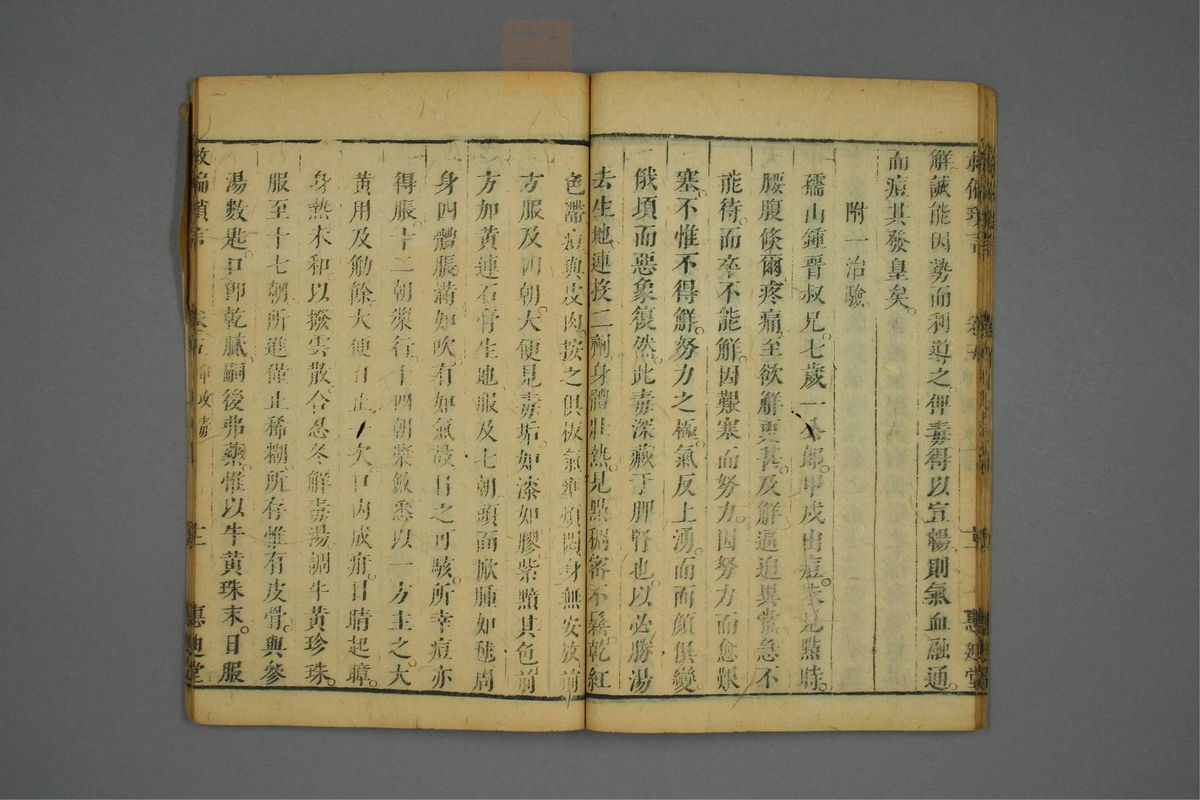 救偏瑣言
卷五
惠迪堂
解誠能因勢而利導之俾毒得以宣暢則氣血融通
而痘其發皇矣
附一治驗
孺山鍾晉叔兄七歲一公郎甲戌出痘未見點時
腰腹倏爾疼痛至欲解更甚及解逼迫異常急不
能待而卒不能解因艱塞而努力因努力而愈艱
塞不惟不得解努力之極氣反上湧面而顏俱變
俄頃而惡象復然此毒深藏于脾腎也以必勝湯
去生地連投二劑身體壯熱見點稠密不鬆乾紅
色滯痘與皮肉按之俱板氣壅煩悶身無安放前
方服及四朝大便見毒垢如漆如膠紫黯其色前
方加黃連石膏生地服及七朝頭面掀腫如毬周
身四體脹滿如吹有如氣鼓目之可駭所幸痘亦
得脹十二朝漿行十四朝漿斂悉以一方主之大
黃用及觔餘大便日止一次口內成疳目睛起障
身熱未和以撥雲散合忍冬解毒湯調牛黃珍珠
服至十七朝所進僅止稀糊所存惟有皮骨與參
湯數匙唇卽乾膩嗣後弗藥惟以牛黃珠末日服
救偏瑣言
卷五
惠迪堂